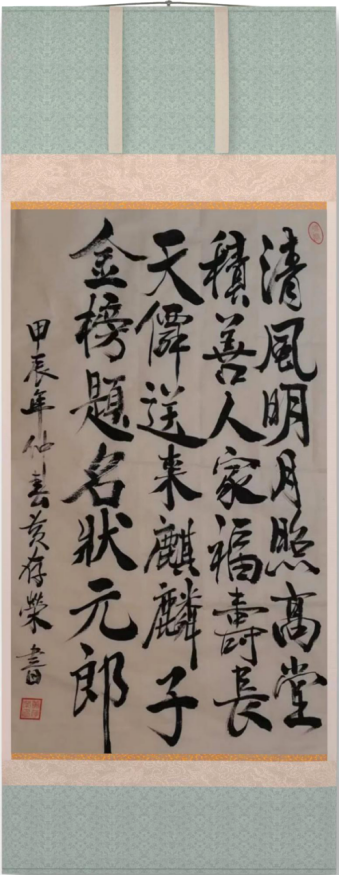 清風明月照高堂
積善人家福壽長
天僊送来麒麟子
金榜題名狀元郎
甲辰年仲春黄存榮書